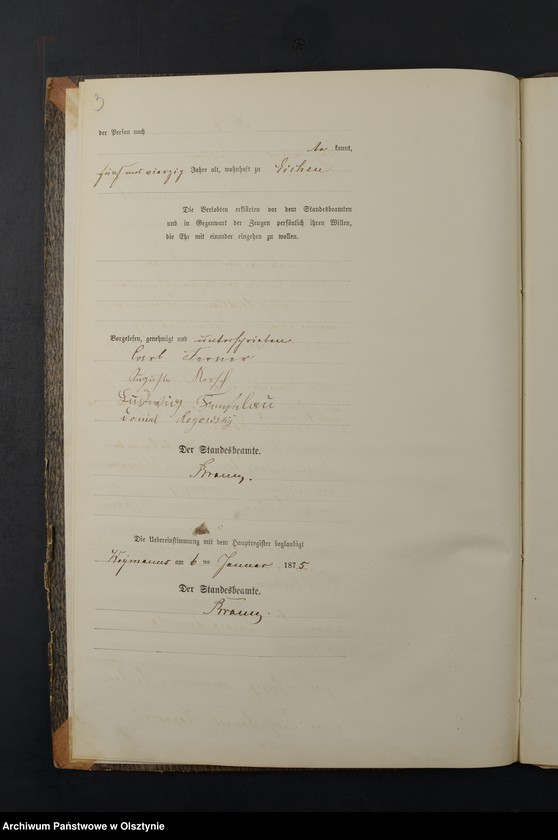 3
der Person nach
be kannt,
fünf und vierzig Jahre alt, wohnhaft zu Eichen
Die Verlobten erklärten vor dem Standesbeamten
und in Gegenwart der Zeugen persönlich ihren Willen,
die Ehe mit einander eingehen zu wollen.
Vorgelesen, genehmigt und unterschrieben
Carl Ferner
Auguste
Ludwig
Daniel
Der Standesbeamte.
Braun.
Die Uebereinstimmung mit dem Hauptregister beglaubigt
am 6 ten Januar 1875.
Der Standesbeamte.
Braun.
Archiwum Państwowe w Olsztynie